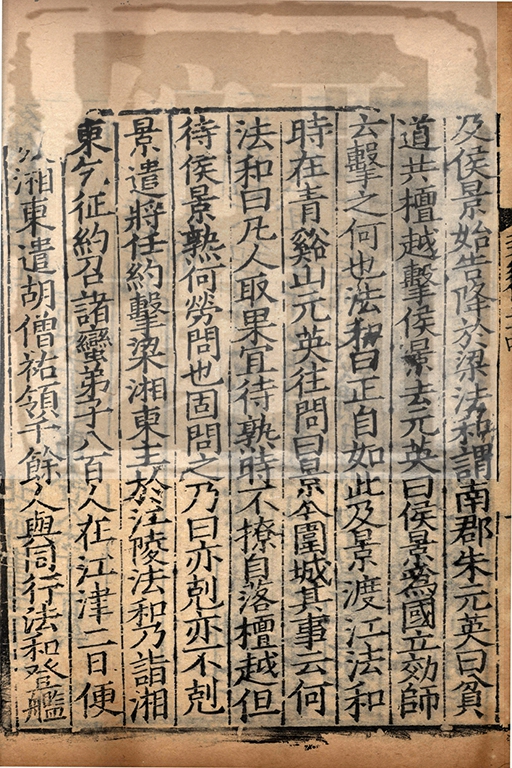 及侯景始告降於梁法和謂南郡朱元英曰貧
道共檀越擊侯景去元英曰侯景為國立効師
云擊之何也法和曰正自如此及景渡江法和
時在青谿山元英往問曰景今圍城其事云何
法和曰凡人取果宜待熟時不撩自落檀越但
待侯景熟何勞問也固問之乃曰亦剋亦不剋
景遣將任約擊梁湘東王於江陵法和乃詣湘
東乞征約召諸蠻弟子八百人在江津二日便
湘東遣胡僧祐領千餘人與同行法和登艦